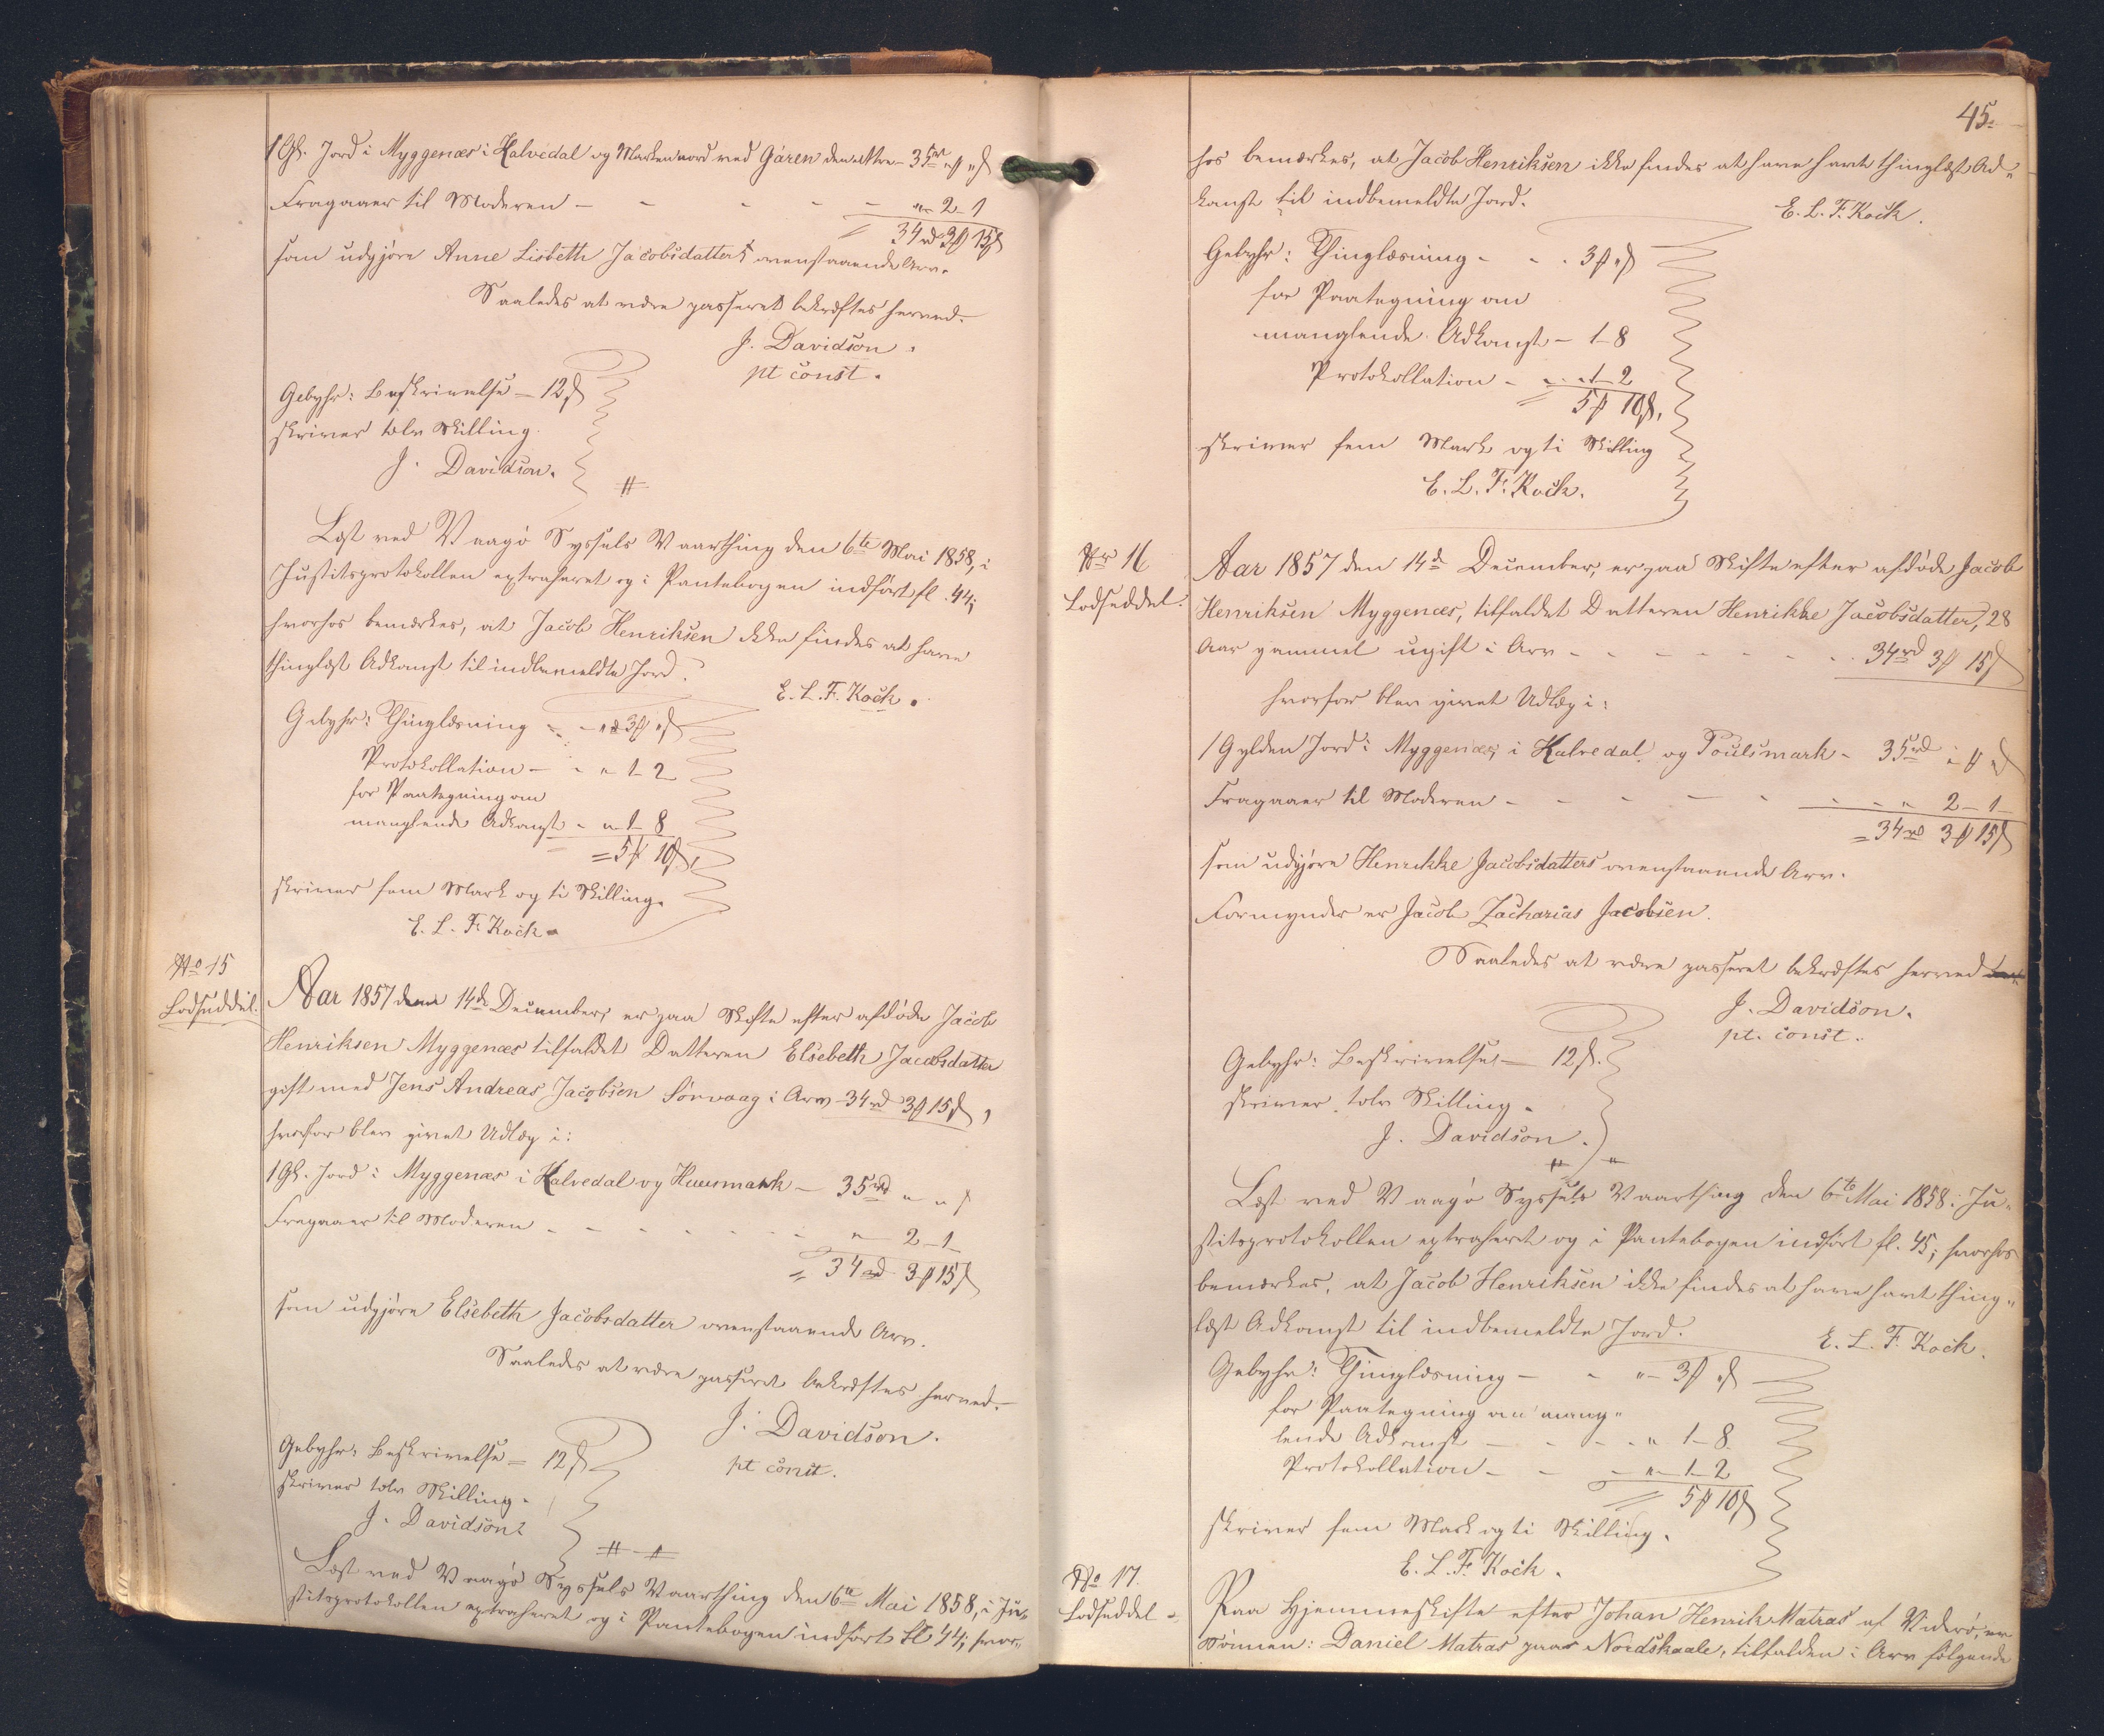 1 Gl. Jord i Myggenæs i Kalvedal og Marken nord ved Gáren den Øvre - 35rd " ß
Fragaaer til Moderen - - - - - " 2 - 1
= 34rd 3ß 15ß
som udgjøre Anne Lisbeth Jacobsdatters ovenstaaende Arv.
Saaledes at være passeret bekræftes herved.
J. Davidson.
pt const.
Gebyhr: Beskrivelse - 12ß
skriver tolv Skilling.
J. Davidson.
Læst ved Vaagø Syssels Vaarthing den 6te Mai 1858, i
Justitsprotokollen extraheret og i Pantebogen indført fl. 44;
hvorhos bemærkes, at Jacob Henriksen ikke findes at have
thinglæst Adkomst til indbemeldte Jord.
E. L. F. Koch.
Gebyhr: Thinglæsning - - " 3ß " ß
Protokollation - - " 1 - 2
for Paategning om
manglende Adkomst - " 1 - 8
= 5ß 10ß,
skriver fem Mark og ti Skilling.
E. L. F. Koch.
No 15
Lodseddel.
Aar 1857 den 14de December, er paa Skifte efter afdøde Jacob
Henriksen Myggenæs tilfaldet Datteren Elsebeth Jacobsdatter
gift med Jens Andreas Jacobsen Sørvaag i Arv 34rd 3ß 15ß,
hvorfor blev givet Udlæg i:
1 Gl. Jord i Myggenæs i Kalvedal og Huusmark - 35rd " " ß
Fragaaer til Moderen - - - - - - - " 2 - 1
= 34rd 3ß 15ß
som udgjøre Elsebeth Jacobsdatter ovenstaaende Arv.
Saaledes at være passeret bekræftes herved.
J. Davidson.
pt const.
Gebyhr: Beskrivelse = 12ß
skriver tolv Skilling.
J. Davidson.
Læst ved Vaagø Syssels Vaarthing den 6te Mai 1858, i Ju-
stitsprotokollen extraheret og i Pantebogen indført fl 44; hvor-
45.
hos bemærkes, at Jacob Henriksen ikke findes at have havt thinglæst Ad-
komst til indbemeldte Jord.
E. L. F. Koch.
Gebyhr: Thinglæsning - - - 3ß " ß
for Paategning om
manglende Adkomst - 1 - 8
Protokollation - - " 1 - 2
5ß 10ß,
skriver fem Mark og ti Skilling
E. L. F. Koch.
No 16
Lodseddel.
Aar 1857 den 14de December, er paa Skifte efter afdøde Jacob
Henriksen Myggenæs, tilfaldet Datteren Henrikke Jacobsdatter, 28
Aar gammel ugift i Arv - - - - - - - 34rd 3ß 15ß
hvorfor blev givet Udlæg i:
1 Gylden Jord i Myggenæs, i Kalvedal og Poulsmark - 35rd " ß " ß
Fragaaer til Moderen - - - - - - - " 2 - 1
= 34rd 3ß 15ß
som udgjøre Henrikke Jacobsdatters ovenstaaende Arv.
Formynder er Jacob Zacharias Jacobsen.
Saaledes at være passeret bekræftes herved
J. Davidson.
pt. const.
Gebyhr: Beskrivelse - 12ß.
skriver tolv Skilling.
J. Davidson.
Læst ved Vaagø Syssels Vaarthing den 6te Mai 1858 i Ju-
stitsprotokollen extraheret og i Pantebogen indført fl. 45; hvorhos
bemærkes, at Jacob Henriksen ikke findes at have havt thing-
læst Adkomst til indbemeldte Jord.
E. L. F. Koch.
Gebyhr: Thinglæsning - - " 3ß " ß
for Paategning om mang-
lende Adkomst - - - - " 1 - 8
Protokollation - - - " 1 - 2
5ß 10ß
skriver fem Mark og ti Skilling.
E. L. F. Koch.
No 17.
Lodseddel
Paa Hjemmeskifte efter Johan Henrik Matras af Viderø, er
Sønnen: Daniel Matras paa Nordskaale, tilfalden i Arv følgende